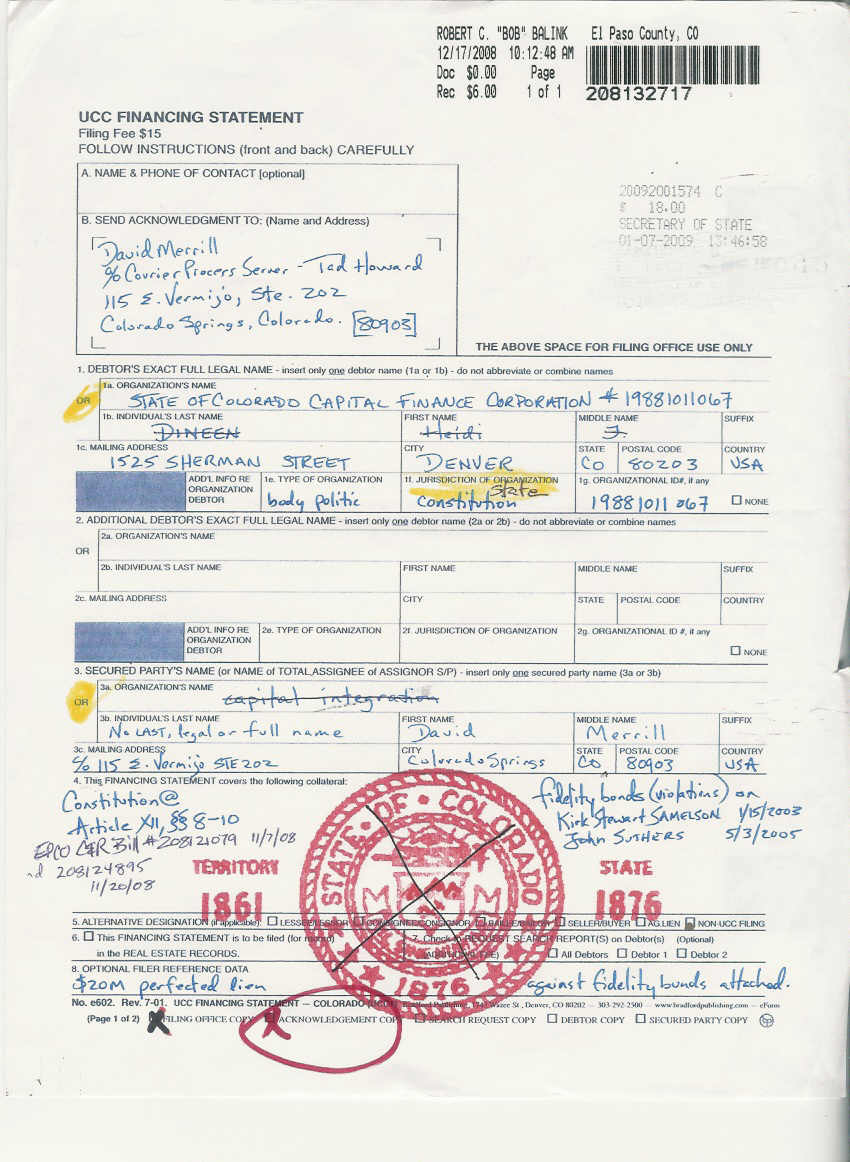 ROBERT C. "BOB" BALINK El Paso County, CO
12/17/2008 10:12:48 AM
Doc $0.00 Page
Rec $6.00 1 of 1 208132717
UCC FINANCING STATEMENT
Filing Fee $15
FOLLOW INSTRUCTIONS (front and back) CAREFULLY
A. NAME & PHONE OF CONTACT [optional]
20092001574 C
$ 18.00
SECRETARY OF STATE
01-07-2009 13:46:58
B. SEND ACKNOWLEDGMENT TO: (Name and Address)
David Merrill
c/o Courier Process Server - Tad Howard
115 E. Vermijo, Ste. 202
Colorado Springs, Colorado. [80903]
THE ABOVE SPACE FOR FILING OFFICE USE ONLY
1. DEBTOR'S EXACT FULL LEGAL NAME - insert only one debtor name (1a or 1b) - do not abbreviate or combine names
1a. ORGANIZATION'S NAME
OR STATE OF COLORADO CAPITAL FINANCE CORPORATION # 19881011067
1b. INDIVIDUAL'S LAST NAME FIRST NAME MIDDLE NAME SUFFIX
DINEEN Heidi J.
1c. MAILING ADDRESS CITY STATE POSTAL CODE COUNTRY
1525 SHERMAN STREET DENVER CO 80203 USA
ADD'L INFO RE ORGANIZATION DEBTOR 1e. TYPE OF ORGANIZATION 1f. JURISDICTION OF ORGANIZATION 1g. ORGANIZATIONAL ID#, if any
body politic state Constitution 19881011067 NONE
2. ADDITIONAL DEBTOR'S EXACT FULL LEGAL NAME - insert only one debtor name (2a or 2b) - do not abbreviate or combine names
2a. ORGANIZATION'S NAME
OR
2b. INDIVIDUAL'S LAST NAME FIRST NAME MIDDLE NAME SUFFIX
2c. MAILING ADDRESS CITY STATE POSTAL CODE COUNTRY
ADD'L INFO RE ORGANIZATION DEBTOR 2e. TYPE OF ORGANIZATION 2f. JURISDICTION OF ORGANIZATION 2g. ORGANIZATIONAL ID #, if any
NONE
3. SECURED PARTY'S NAME (or NAME of TOTAL ASSIGNEE of ASSIGNOR S/P) - insert only one secured party name (3a or 3b)
3a. ORGANIZATION'S NAME
OR capital integration
3b. INDIVIDUAL'S LAST NAME FIRST NAME MIDDLE NAME SUFFIX
No LAST, legal or full name David Merrill
3c. MAILING ADDRESS CITY STATE POSTAL CODE COUNTRY
c/o 115 E. Vermijo STE 202 Colorado Springs CO 80903 USA
4. This FINANCING STATEMENT covers the following collateral:
Constitution@
Article XII, §§ 8-10
EPCO C&R Bill # 208121079 11/7/08
nd 208124895
11/20/08
fidelity bonds (violations) on
Kirk Stewart SAMELSON 1/15/2003
John SUTHERS 5/3/2005
STATE OF COLORADO
1876
TERRITORY
1861
STATE
1876
5. ALTERNATIVE DESIGNATION (if applicable): LESSEE/LESSOR CONSIGNEE/CONSIGNOR SELLER/BUYER AG LIEN NON-UCC FILING
6. This FINANCING STATEMENT is to be filed (for record) in the REAL ESTATE RECORDS.
7. Check to REQUEST SEARCH REPORT(S) on Debtor(s) (Optional)
All Debtors Debtor 1 Debtor 2
8. OPTIONAL FILER REFERENCE DATA
$20M perfected lien against fidelity bonds attached.
No. e602. Rev. 7-01. UCC FINANCING STATEMENT — COLORADO Bradford Publishing, 1743 Wazee St., Denver, CO 80202 — 303-292-2500 — www.bradfordpublishing.com — eForm
(Page 1 of 2) X FILING OFFICE COPY X ACKNOWLEDGEMENT COPY SEARCH REQUEST COPY DEBTOR COPY SECURED PARTY COPY